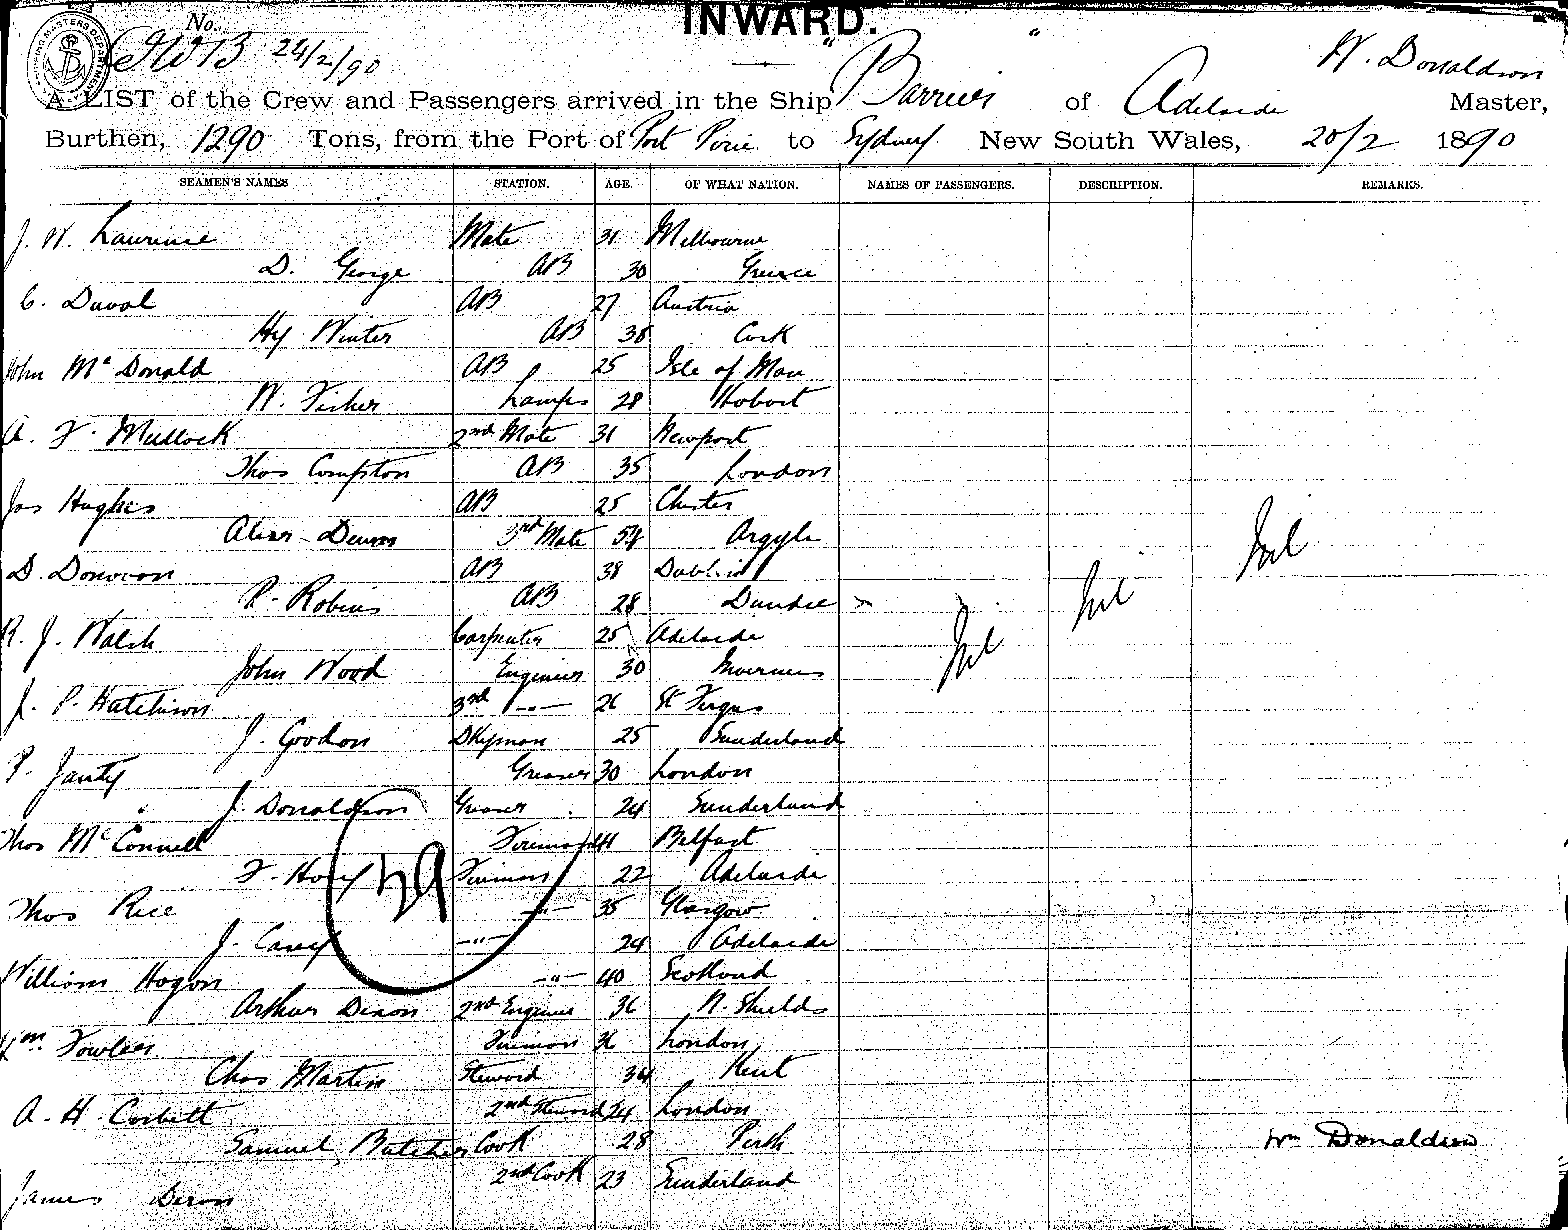 INWARD.
No.
24/2/90
W. Donaldson
A LIST of the Crew and Passengers arrived in the Ship "Barrier" of Adelaide Master,
Burthen, 1290 Tons, from the Port of Port Pirie to Sydney New South Wales, 20/2 1890
SEAMEN'S NAMES STATION. AGE. OF WHAT NATION. NAMES OF PASSENGERS. DESCRIPTION. REMARKS.
J. W. Lawrence Mate 31 Melbourne
D. George AB 30 Greece
C. Duval AB 27 Austria
Hy Winter AB 38 Cork
John McDonald AB 25 Isle of Man
W. Fisher Lamps 28 Hobart
A. F. Mullock 2nd Mate 31 Newport
Thos Compton AB 35 London
Jas Hughes AB 25 Chester
3rd Mate Argyle
D. Donovan AB 38 Dublin
P. Robins AB 28 Dundee
R. J. Walsh Carpenter 25 Adelaide
John Wood Engineer 30 Inverness
J. P. Hutchison 3rd -"- 26 St Fergus
J. Goodon Dkyman 25 Sunderland
P. Janty Greaser 30 London
J. Donaldson Greaser 24 Sunderland
Thos McConnell Fireman 41 Belfast
Fireman 22 Adelaide
Thos Rice -"- 35 Glasgow
J. Carey -"- 24 Adelaide
William Hogan -"- 40 Scotland
Arthur Dixon 2nd Engineer 36 N. Shields
Wm Fowler Fireman 36 London
Chas Martin Steward 34 Kent
A. H. Corbett 2nd Steward 24 London
Samuel Butcher Cook 28 Perth
James 2nd Cook 23 Sunderland
Nil
Nil
Nil
29
Wm Donaldson